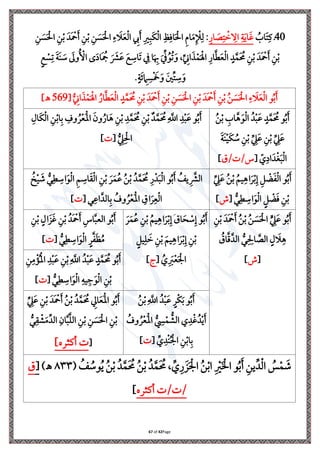 40. كِتَابُ غَايَةِ الِاخْتِصَارِ: لِلْإِمَامِ الْحَافِظِ الْكَبِيرِ أَبِي الْعَلَاءِ الْحَسَنِ بْنِ أَحْمَدَ بْنِ الْحَسَنِ
بْنِ أَحْمَدَ بْنِ مُحَمَّدٍ الْعَطَّارِ الْهَمْدَانِيِّ، وَتُوُفِّيَ بِهَا فِي تَاسِعَ عَشَرَ جُمَادَى الْأُولَى سَنَةَ تِسْعٍ
وَسِتِّينَ وَخَمْسِمِائَةٍ.
أَبُو الْعَلَاءِ الْحَسَنُ بْنُ أَحْمَدَ بْنِ الْحَسَنِ بْنِ أَحْمَدَ بْنِ مُحَمَّدٍ الْعَطَّارُ الْهَمْدَانِيُّ [569 هـ]
أَبُو مُحَمَّدٍ عَبْدُ الْوَهَّابِ بْنُ
عَلِيِّ بْنِ عَلِيِّ بْنِ سُكَيْنَةَ
الْبَغْدَادِيُّ [س/ت/ق]
أَبُو عَبْدِ اللهِ مُحَمَّدُ بْنُ مُحَمَّدِ بْنِ هَارُونَ الْمَعْرُوفُ بِابْنِ الْكَالِ
الْحِلِّيُّ [ت]
أَبُو الْفَضْلِ إِبْرَاهِيمُ بْنُ عَلِيِّ
بْنِ فَضْلٍ الْوَاسِطِيُّ [ش]
الشَّرِيفُ أَبُو الْبَدْرِ مُحَمَّدُ بْنُ عُمَرَ بْنِ الْقَاسِمِ الْوَاسِطِيُّ شَيْخُ
الْعِرَاقِ الْمَعْرُوفُ بِالدَّاعِي [ت]
أَبُو عَلِيٍّ الْحَسَنُ بْنُ أَحْمَدَ بْنِ
هِلَالٍ الصَّالِحِيُّ الدَّقَّاقُ
[ش]
أَبُو إِسْحَاقَ إِبْرَاهِيمُ بْنُ عُمَرَ
بْنِ إِبْرَاهِيمَ بْنِ خَلِيلٍ
الْجَعْبَرِيُّ [ج]
أَبُو الْعبَّاسِ أَحْمَدُ بْنُ غَزَالِ بْنِ
مُظَفَّرٍ الْوَاسِطِيُّ [ت]
أَبُو مُحَمَّدٍ عَبْدُ اللهِ بْنِ عَبْدِ الْمُؤْمِنِ
بْنِ الْوَجِيهِ الْوَاسِطِيُّ [ت]
أَبُو بَكْرٍ عَبْدُ اللهِ بْنُ
أَيْدُغْدِي الشَّمْسِيُّ الْمَعْرُوفُ
بِابْنِ الْجُنْدِيِّ [ت]
أَبُو الْمَعَالِي مُحَمَّدُ بْنُ أَحْمَدَ بْنِ عَلِيِّ
بْنِ الْحَسَنِ بْنِ اللَّبَّانِ الدِّمَشْقِيُّ
[ت أكثره]
شَمْسُ الدِّينِ أَبُو الْخَيْرِ ابْنُ الْجَزَرِيِّ، مُحَمَّدُ بْنُ مُحَمَّدُ بْنُ يُوسُفُ (٨٣٣ هـ) [ق
/ت/ت أكثره]
67 of 42Page